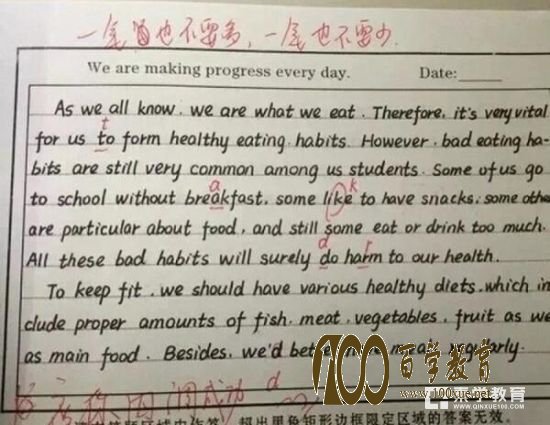 一定也不要多,一定也不要少.
We are making progress every day. Date:
t
As we all know, we are what we eat. Therefore, it's very vital
for us to form healthy eating habits. However, bad eating ha-
bits are still very common among us students. Some of us go
a k
to school without breakfast, some like to have snacks, some othe
are particular about food, and still some eat or drink too much.
d r
All these bad habits will surely do harm to our health.
To keep fit, we should have various healthy diets, which in
clude proper amounts of fish, meat, vegetables, fruit as we
as main food. Besides, we'd bette meals regularly.
100 百学教育
www.100xue.net
秦学教育
www.qinxue100.com
成功 d
超出黑色矩形边框限定区域的答案无效